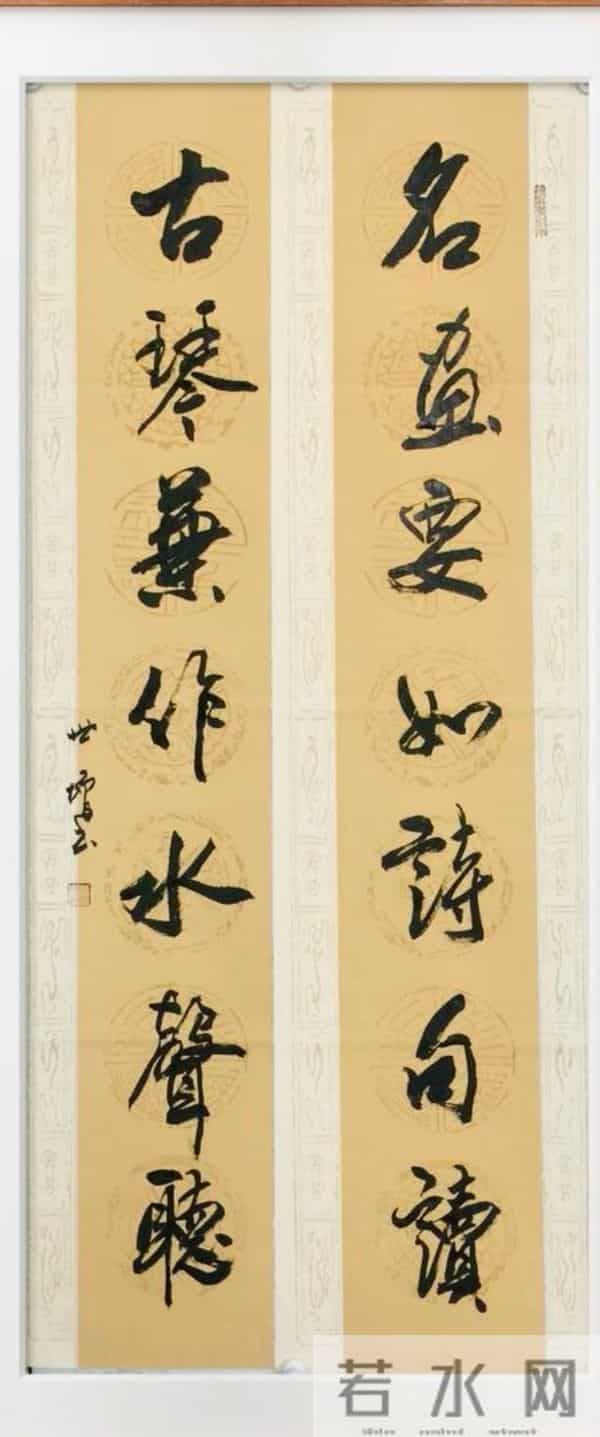 名畫要如詩句讀
古琴兼作水聲聽
世增书
若水网